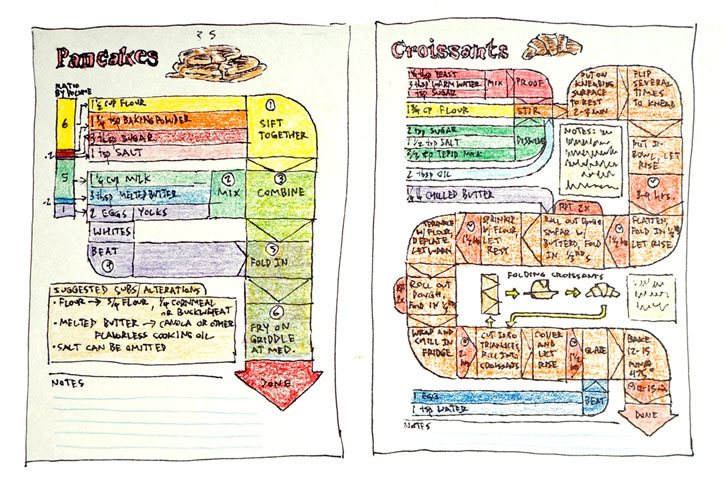 Pancakes
RATIO
BY VOLUME
6
1 1/2 CUP FLOUR
BAKING POWDER
SUGAR
1 tsp SALT
.2
5
1 1/4 CUP MILK
3 tbsp MELTED BUTTER
.2
1
2 EGGS YOLKS
WHITES
BEAT
1
SIFT
TOGETHER
2
MIX
3
COMBINE
5
FOLD IN
6
FRY ON
GRIDDLE
AT MED.
DONE
SUGGESTED SUBS/ALTERATIONS
• FLOUR → 3/4 FLOUR, 1/4 CORNMEAL
OR BUCKWHEAT
• MELTED BUTTER → CANOLA OR OTHER
FLAVORLESS COOKING OIL
• SALT CAN BE OMITTED
NOTES
Croissants
YEAST
3 tbsp WARM WATER
1 tsp SUGAR
MIX
PROOF
1 3/4 CP FLOUR
STIR
2 tsp SUGAR
1 1/2 tsp SALT
TEPID MILK
DISSOLVE
2 tbsp OIL
CHILLED BUTTER
PUT ON
KNEADING
SURFACE
TO REST
2-3 MIN
FLIP
SEVERAL
TIMES
TO KNEAD
NOTES:
PUT IN
BOWL, LET
RISE
3-4 HRS.
RPT 2X
SPRINKLE
W/ FLOUR,
DEFLATE,
SPRINKLE
W/ FLOUR
LET
REST
ROLL OUT DOUGH,
SMEAR W/
BUTTER, FOLD
IN 1/3RDS
FLATTEN,
FOLD IN
LET RISE
ROLL OUT
DOUGH,
FOLD IN
FOLDING CROISSANTS
WRAP AND
CHILL IN
FRIDGE
2
CUT INTO
TRIANGLES
ROLL INTO
CROISSANTS
COVER
AND
LET
RISE
GLAZE
BAKE
12-15
MIN @
475°
1 EGG
1 tsp WATER
BEAT
DONE
NOTES